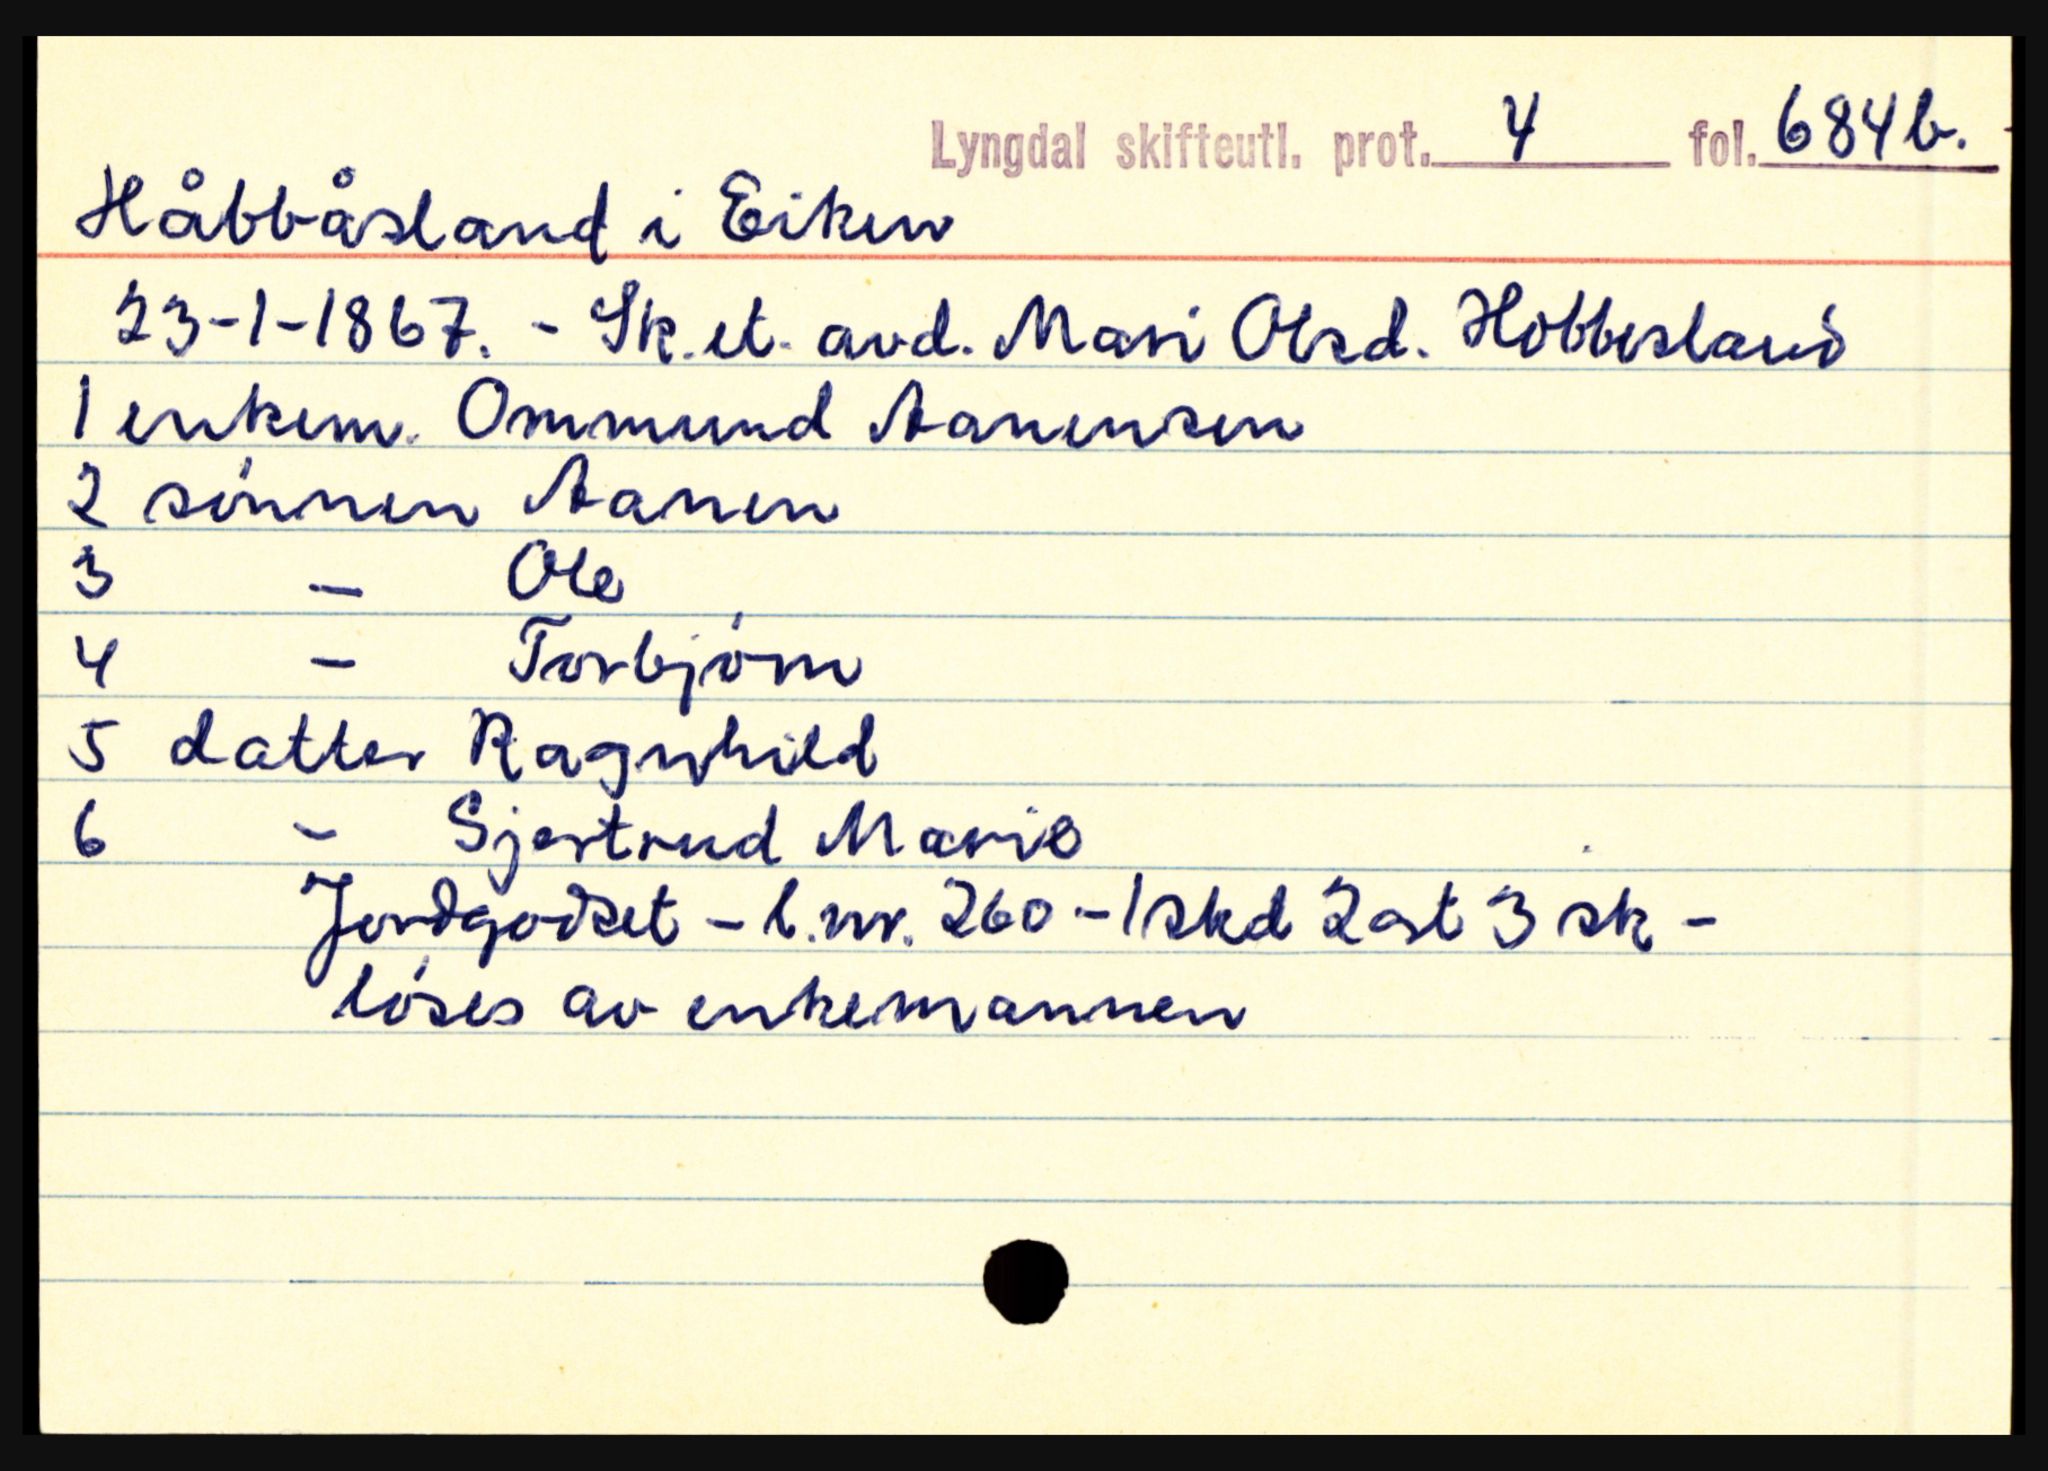 Lyngdal skifteutl. prot. 4 fol. 684b.
Håbbåsland i Eiken
23-1-1867. - Sk. et. avd. Mari Olsd. Hobbesland
1 enkem. Ommund Aanensen
2 sónnen Aanen
3 - Ole
4 - Torbjórn
5 datter Ragnhild
6 - Gjertrud Marie
Jordgodset - l.nr. 260 - 1 skd 2 ort 3 sk -
lóses av enkemannen